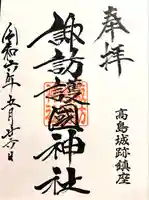 奉拝
高島城跡鎮座
諏訪護國神社
令和六年五月廿六日